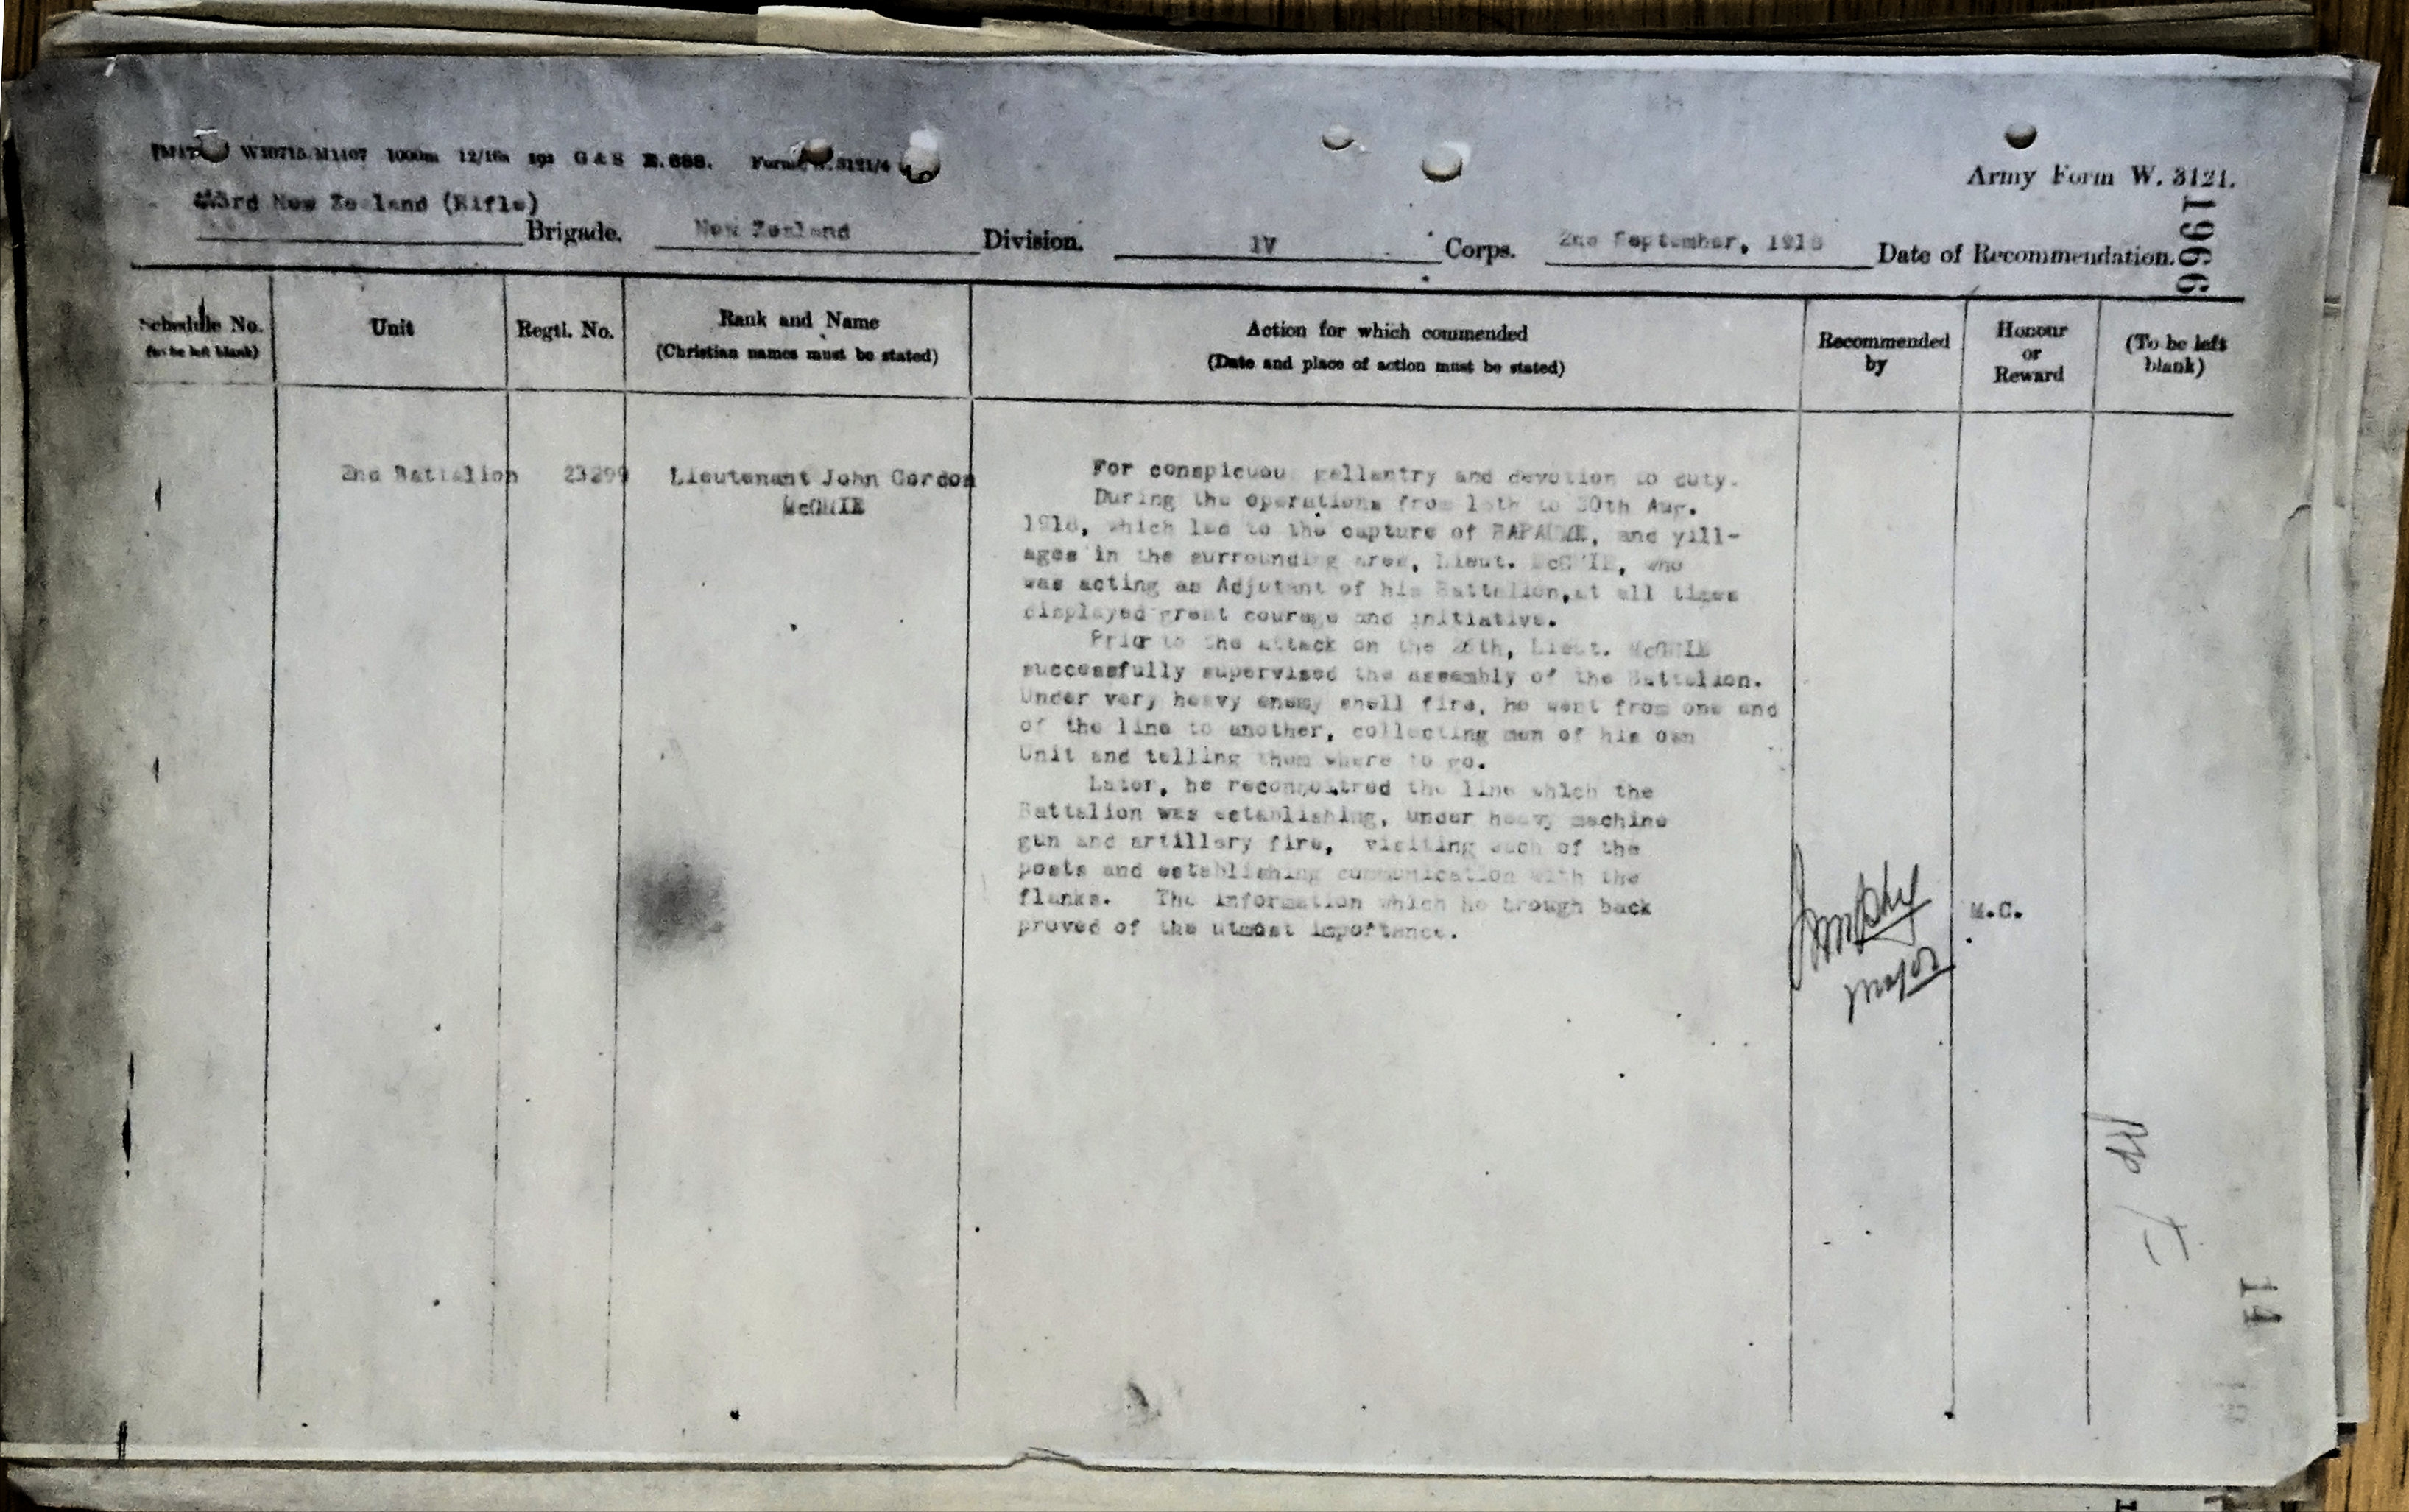 W10715/M1107 1000m 12/16s 193 G & S E.688.
Army Form W. 3121.
3rd New Zealand (Rifle)
Brigade. New Zealand Division. IV Corps. 2nd September, 1918 Date of Recommendation.
1966
Schedule No. Unit Regtl. No. Rank and Name Action for which commended Recommended by Honour or Reward (To be left blank)
(to be left blank) (Christian names must be stated) (Date and place of action must be stated)
2nd Battalion Lieutenant John Gordon
For conspicuous gallantry and devotion to duty.
During the operations from to 30th Aug.
1918, which led to the capture of BAPAUME, and vill-
ages in the surrounding area, Lieut. who
was acting as Adjutant of his Battalion,at all times
displayed great courage and initiative.
Prior to the attack on the Lieut.
successfully supervised the assembly of the Battalion.
Under very heavy enemy shell fire, he went from one end
of the line to another, collecting men of his own
Unit and telling them where to go.
Later, he reconnoitred the line which the
Battalion was establishing, under heavy machine
gun and artillery fire, visiting each of the
posts and establishing communication with the
flanks. The information which he brough back
proved of the utmost importance.
Major
M.C.
14